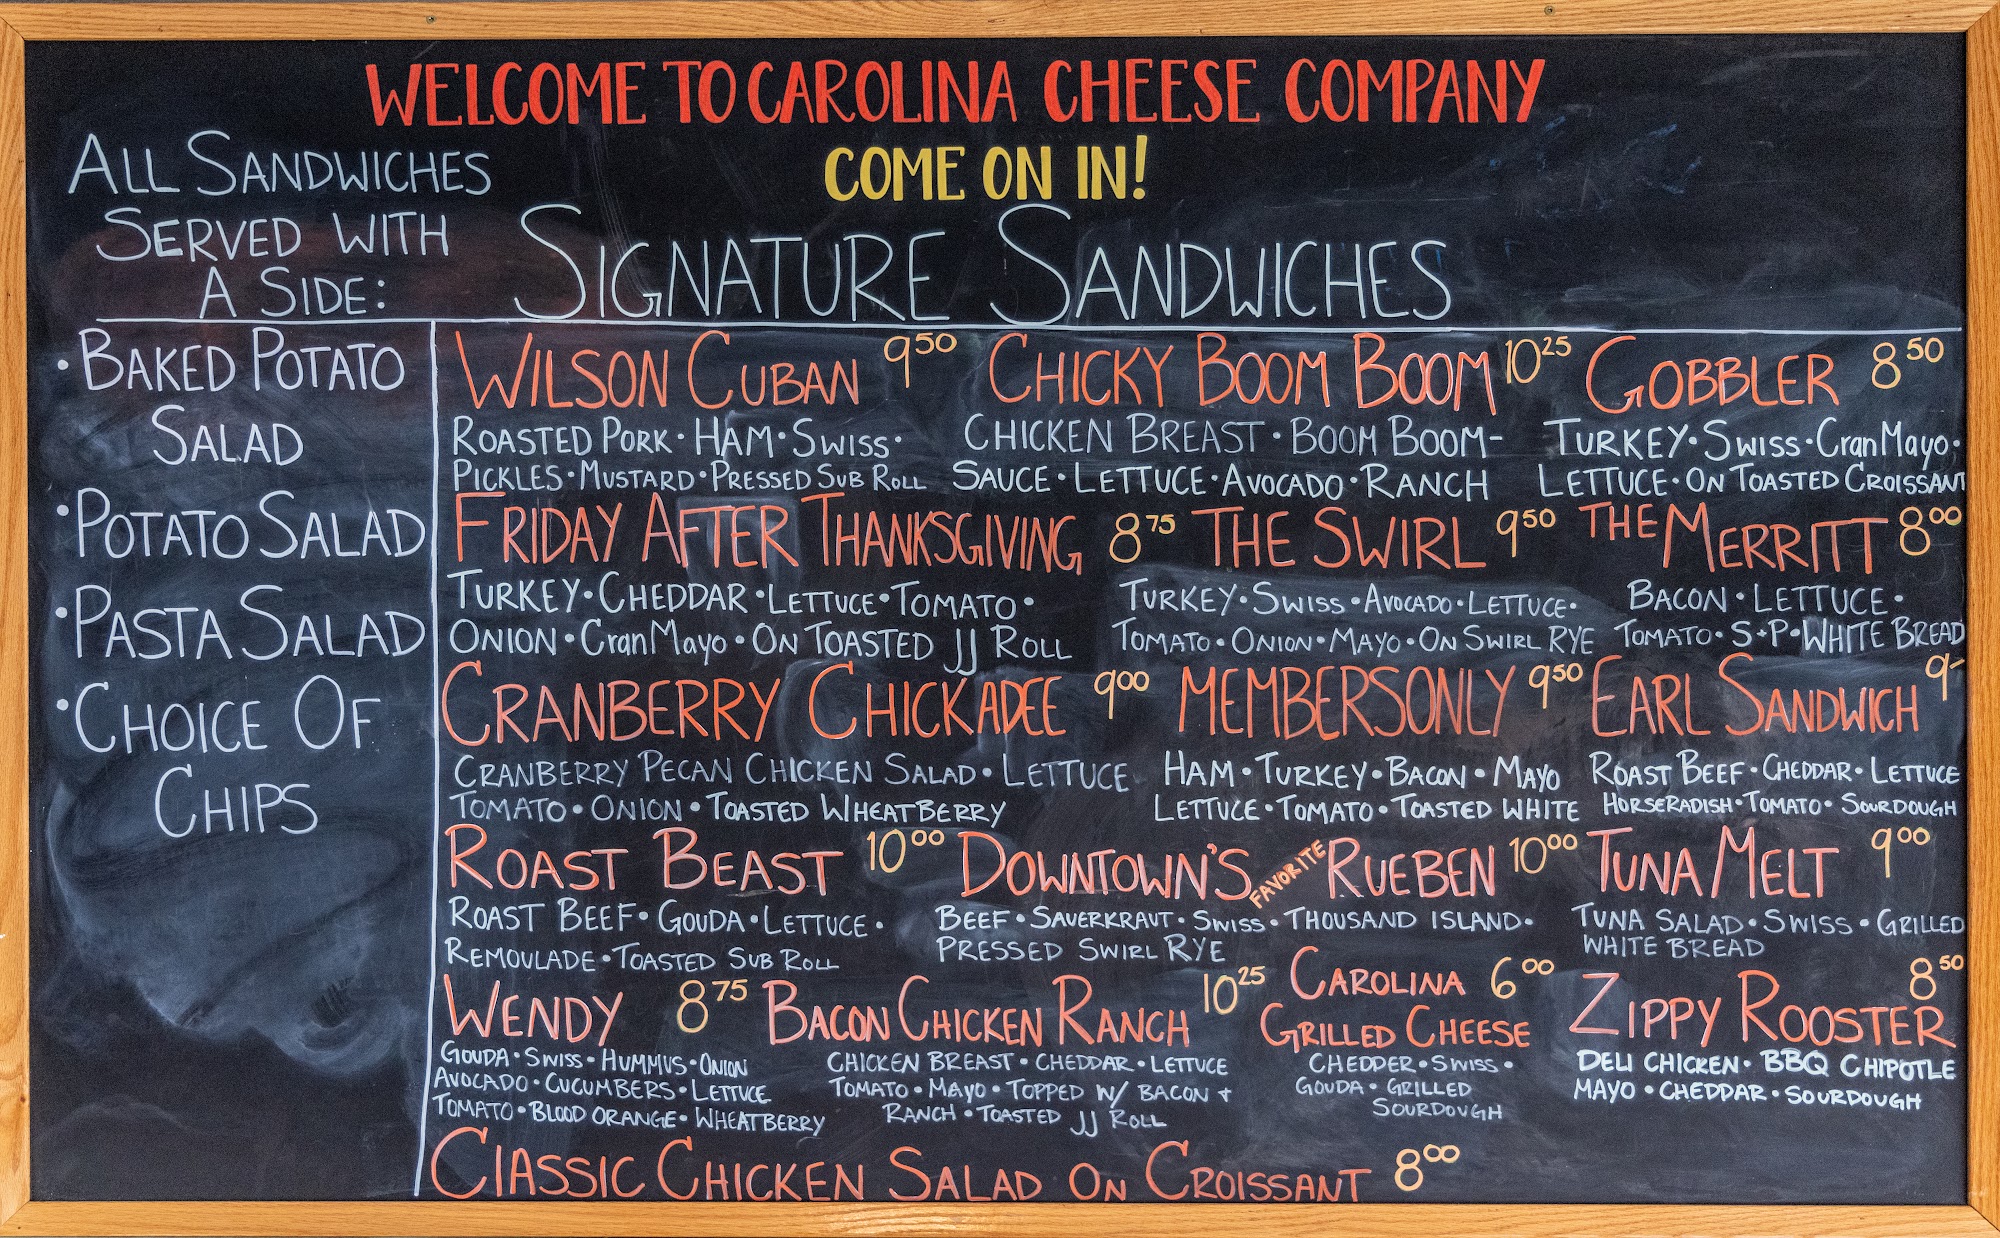 WELCOME TO CAROLINA CHEESE COMPANY
COME ON IN!
ALL SANDWICHES
SERVED WITH
A SIDE:
• BAKED POTATO
SALAD
• POTATO SALAD
• PASTA SALAD
• CHOICE OF
CHIPS
SIGNATURE SANDWICHES
WILSON CUBAN 9.50
ROASTED PORK • HAM • SWISS •
PICKLES • MUSTARD • PRESSED SUB ROLL
CHICKY BOOM BOOM 10.25
CHICKEN BREAST • BOOM BOOM-
SAUCE • LETTUCE • AVOCADO • RANCH
GOBBLER 8.50
TURKEY • SWISS • CranMayo •
LETTUCE • ON TOASTED CROISSANT
FRIDAY AFTER THANKSGIVING 8.75
TURKEY • CHEDDAR • LETTUCE • TOMATO •
ONION • CranMayo • ON TOASTED JJ ROLL
THE SWIRL 9.50
TURKEY • SWISS • AVOCADO • LETTUCE •
TOMATO • ONION • MAYO • ON SWIRL RYE
THE MERRITT 8.00
BACON • LETTUCE •
TOMATO • S+P • WHITE BREAD
CRANBERRY CHICKADEE 9.00
CRANBERRY PECAN CHICKEN SALAD • LETTUCE
TOMATO • ONION • TOASTED WHEATBERRY
MEMBERSONLY 9.50
HAM • TURKEY • BACON • MAYO
LETTUCE • TOMATO • TOASTED WHITE
EARL SANDWICH 9-
ROAST BEEF • CHEDDAR • LETTUCE
HORSERADISH • TOMATO • SOURDOUGH
ROAST BEAST 10.00
ROAST BEEF • GOUDA • LETTUCE •
REMOULADE • TOASTED SUB ROLL
DOWNTOWN'S FAVORITE RUEBEN 10.00
BEEF • SAUERKRAUT • SWISS • THOUSAND ISLAND •
PRESSED SWIRL RYE
TUNA MELT 9.00
TUNA SALAD • SWISS • GRILLED
WHITE BREAD
WENDY 8.75
GOUDA • SWISS • HUMMUS • ONION
AVOCADO • CUCUMBERS • LETTUCE
TOMATO • BLOOD ORANGE • WHEATBERRY
BACON CHICKEN RANCH 10.25
CHICKEN BREAST • CHEDDAR • LETTUCE
TOMATO • MAYO • TOPPED W/ BACON +
RANCH • TOASTED JJ ROLL
CAROLINA 6.00
GRILLED CHEESE
CHEDDER • SWISS •
GOUDA • GRILLED
SOURDOUGH
ZIPPY ROOSTER 8.50
DELI CHICKEN • BBQ CHIPOTLE
MAYO • CHEDDAR • SOURDOUGH
CLASSIC CHICKEN SALAD ON CROISSANT 8.00